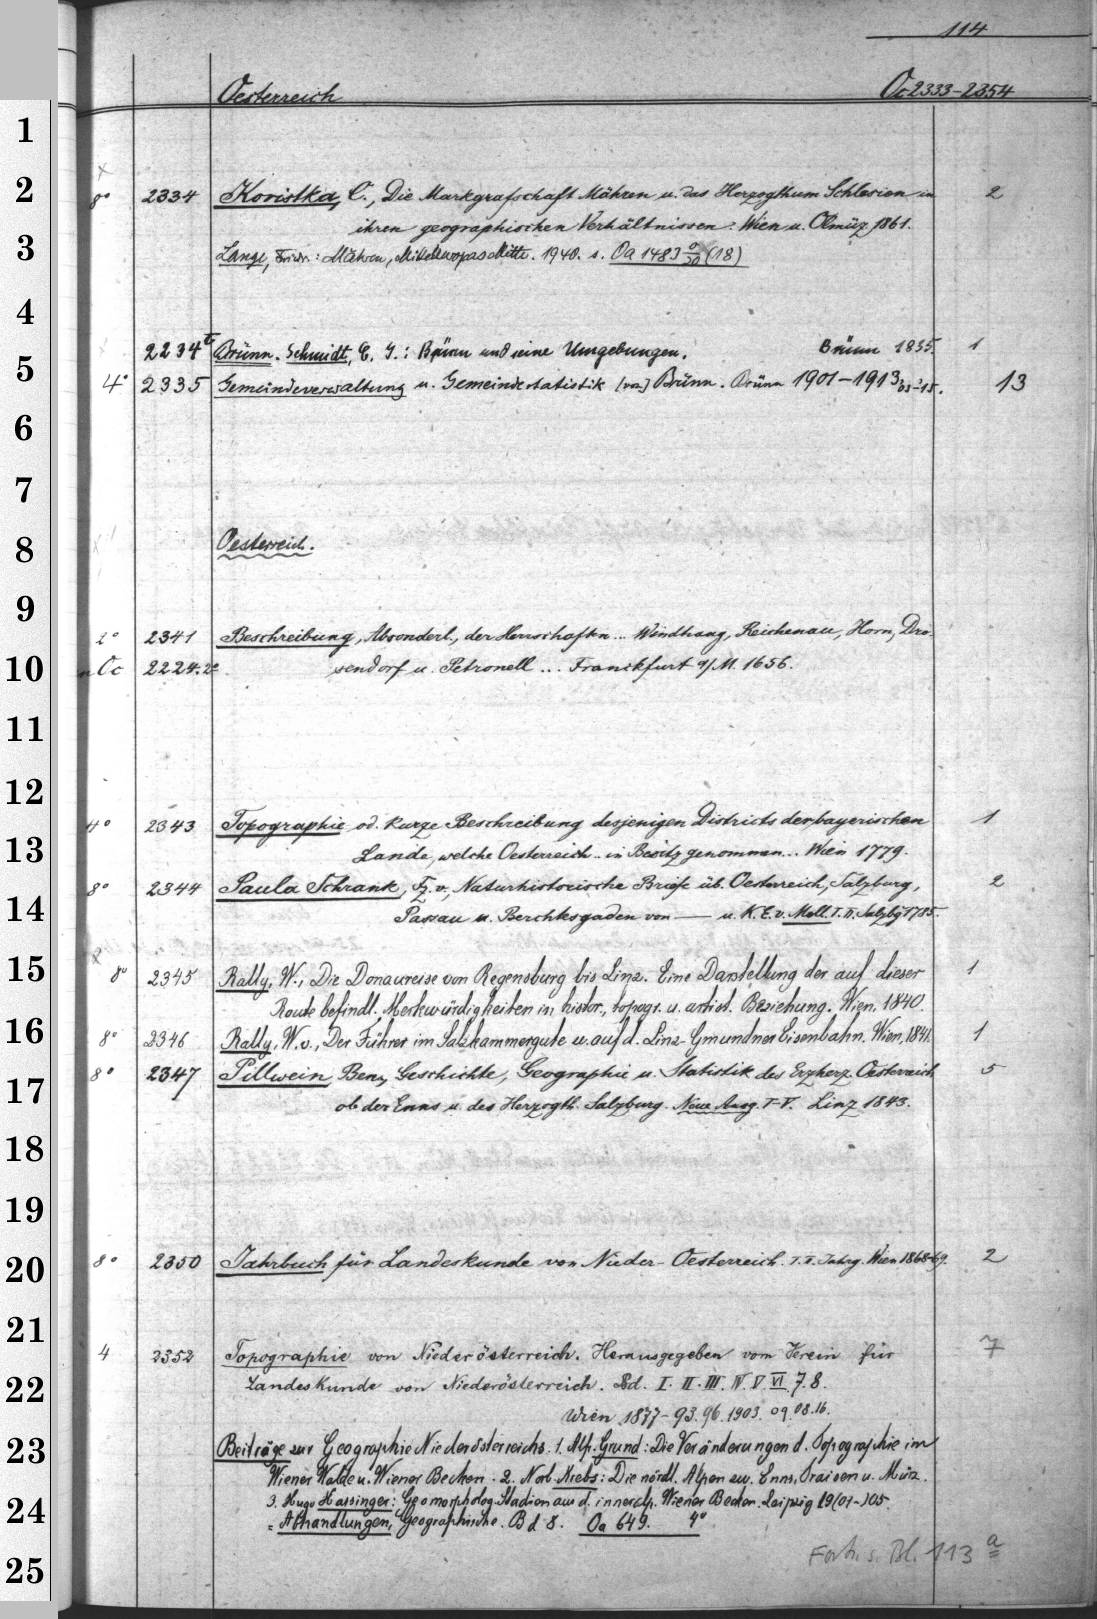 114
Oesterreich Oc 2333-2354
1
2
8° 2334 Koristka, C., Die Markgrafschaft Mähren u. das Herzogthum Schlesien in 2
ihren geographischen Verhältnissen. Wien u. Olmüz 1861.
3
Lange, Friedr.: Mähren, Mitteleuropas Mitte. 1940. s. Oa 1483 (18)
4
2234 Brünn. Schmidt, C. J.: Brünn und seine Umgebungen. Brünn 1835. 1
5
4° 2335 Gemeindeverwaltung u. Gemeindestatistik [von] Brünn. Brünn 1901-1913, 13
6
7
8
Oesterreich.
9
2° 2341 Beschreibung, Absonderl., der Herrschaften... Windhaag, Reichenau, Horn, Dro-
10
in Oc 2224.2° sendorf u. Petronell ... Franckfurt a/M. 1656.
11
12
4° 2343 Topographie od. kurze Beschreibung desjenigen Districts der bayerischen 1
13
Lande, welche Oesterreich .. in Besitz genommen... Wien 1779.
8° 2344 Paula Schrank, Fz. v., Naturhistorische Briefe üb. Oesterreich, Salzburg, 2
14
Passau u. Berchtesgaden von — u. K. E. v. Moll. I. II. Salzbg 1785.
15
8° 2345 Rally, W., Die Donaureise von Regensburg bis Linz. Eine Darstellung der auf dieser 1
Route befindl. Merkwürdigkeiten in histor., topogr. u. artist. Beziehung. Wien, 1840.
16
8° 2346 Rally, W. v., Der Führer im Salzkammergute u. auf d. Linz-Gmundner Eisenbahn. Wien, 1841. 1
17
8° 2347 Pillwein, Ben., Geschichte, Geographie u. Statistik des Erzherz. Oesterreich 5
ob der Enns u. des Herzogth. Salzburg. Neue Ausg. I-V. Linz 1843.
18
19
20
8° 2350 Jahrbuch für Landeskunde von Nieder-Oesterreich. I. II. Jahrg. Wien 1868-69. 2
21
4 2352 Topographie von Niederösterreich. Herausgegeben vom Verein für 7
22
Landeskunde von Niederösterreich. Bd. I. II. III. IV. V. VI 7. 8.
Wien 1877-93. 96. 1903. 09. 08. 16.
23
Beiträge zur Geographie Niederösterreichs. 1. Alf. Grund: Die Veränderungen d. Topographie im
Wiener Walde u. Wiener Becken. 2. Norb. Krebs: Die nördl. Alpen zw. Enns, Traisen u. Mürz.
24
3. Hugo Hassinger: Geomorpholog. Studien aus d. inneralp. Wiener Becken. Leipzig 19(01-)05.
= Abhandlungen, Geographische. Bd 8. Oa 649. 4°
25
Forts. s. Bl. 113 a